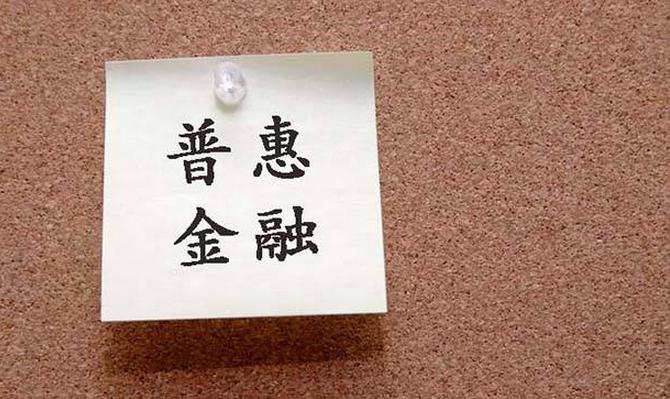 普惠
金融